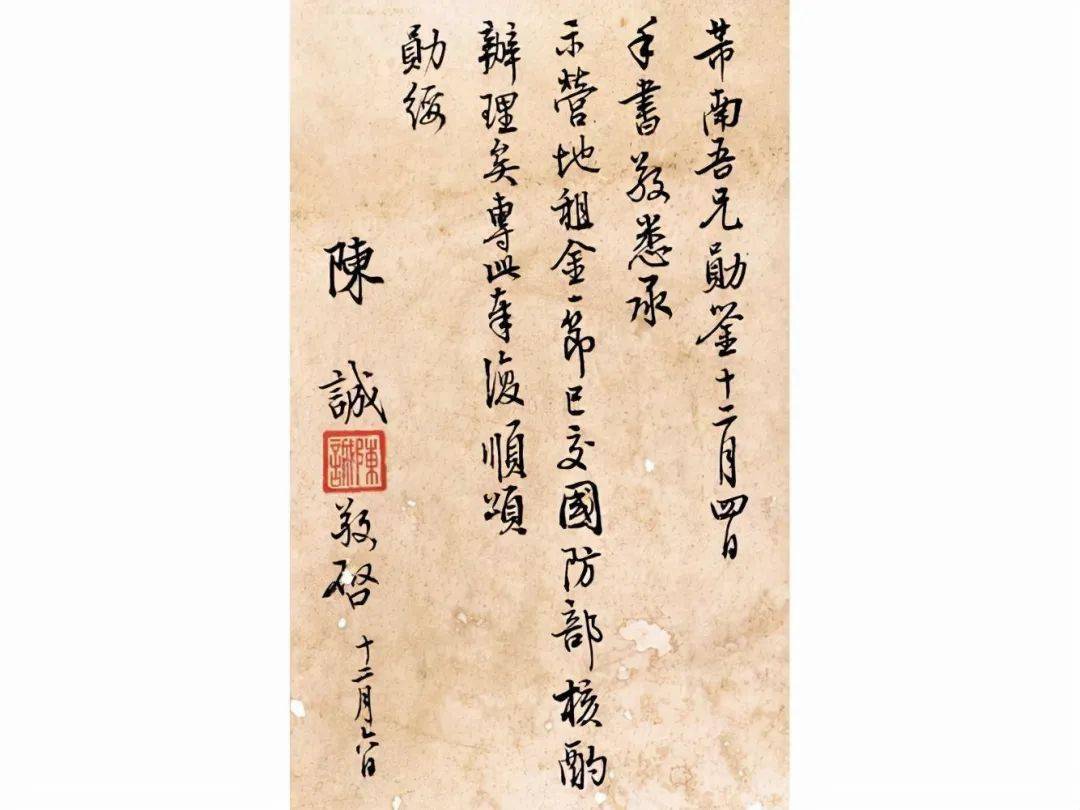 芾南吾兄勛鑒十二月四日
手書敬悉承
示營地租金一節已交國防部核酌
辦理矣專此奉復順頌
勛綏
陳誠
陳誠
敬啓十二月六日